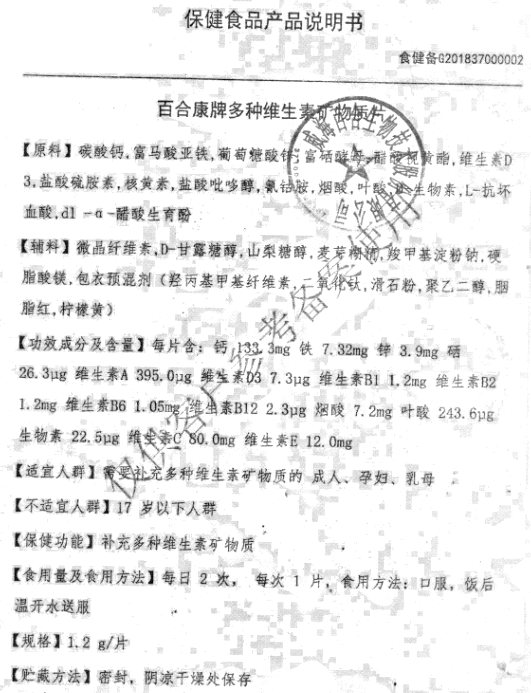 保健食品产品说明书
食健备G201837000002
百合康牌多种维生素矿物质片
【原料】碳酸钙,富马酸亚铁,葡萄糖酸锌,富硒酵母,醋酸视黄酯,维生素D
3,盐酸硫胺素,核黄素,盐酸吡哆醇,氰钴胺,烟酸,叶酸,D-生物素,L-抗坏
血酸,dl-α-醋酸生育酚
【辅料】微晶纤维素,D-甘露糖醇,山梨糖醇,麦芽糊精,羧甲基淀粉钠,硬
脂酸镁,包衣预混剂（羟丙基甲基纤维素,二氧化钛,滑石粉,聚乙二醇,胭
脂红,柠檬黄）
【功效成分及含量】每片含: 钙 133.3mg 铁 7.32mg 锌 3.9mg 硒
26.3μg 维生素A 395.0μg 维生素D3 7.3μg 维生素B1 1.2mg 维生素B2
1.2mg 维生素B6 1.05mg 维生素B12 2.3μg 烟酸 7.2mg 叶酸 243.6μg
生物素 22.5μg 维生素C 80.0mg 维生素E 12.0mg
【适宜人群】需要补充多种维生素矿物质的 成人、孕妇、乳母
【不适宜人群】17 岁以下人群
【保健功能】补充多种维生素矿物质
【食用量及食用方法】每日 2 次, 每次 1 片, 食用方法: 口服, 饭后
温开水送服
【规格】1.2 g/片
【贮藏方法】密封, 阴凉干燥处保存
仅供客户参考备案使用
威海百合生物技术股份有限公司